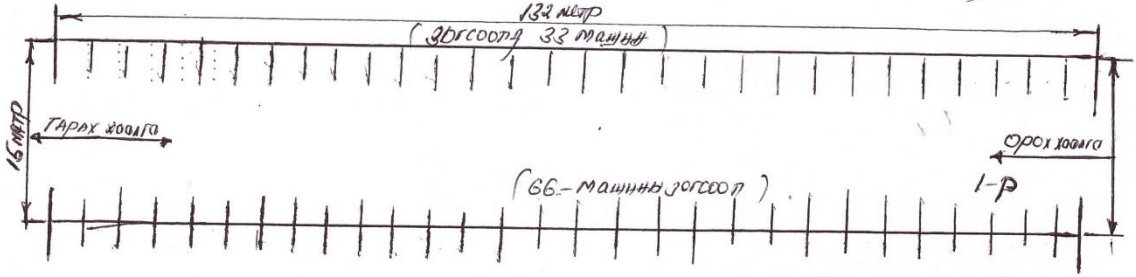 132 метр
(Зогсоолд 33 машин)
15 метр
ТАРАХ хаалга
ОРОХ хаалга
1-р
(66-машины зогсоол)